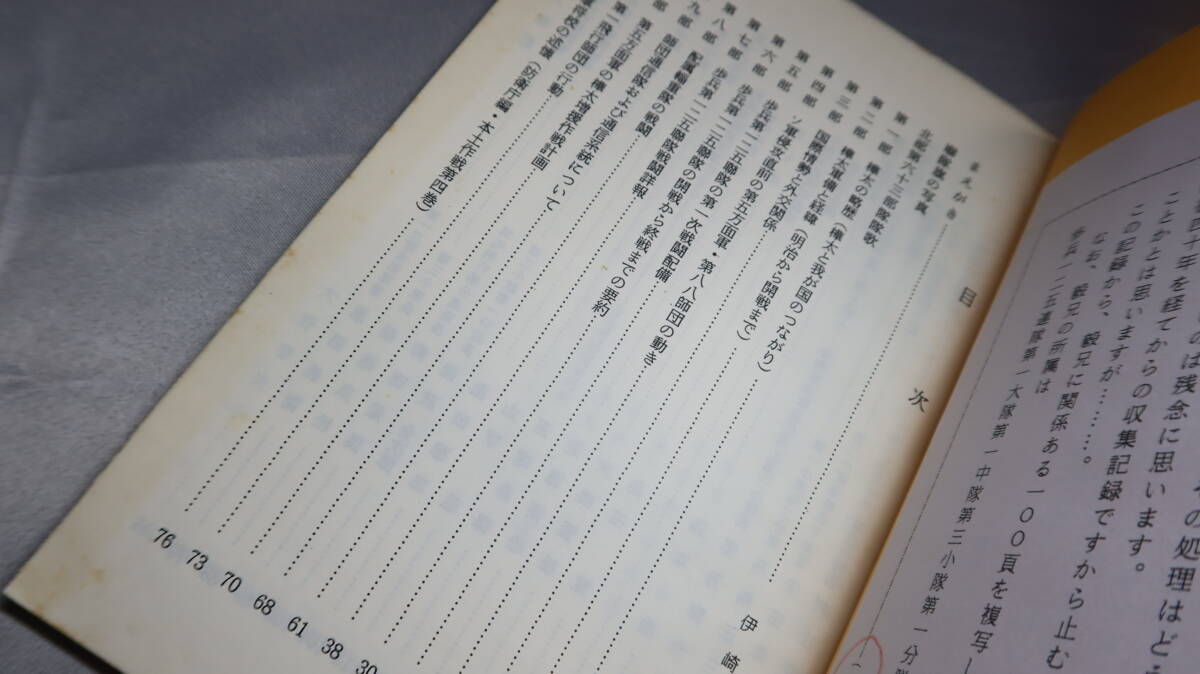 目次
まえがき 伊崎
聯隊旗の写真
北部第六十三部隊隊歌
第一部 樺太の略歴(樺太と我が国のつながり)
第二部 樺太軍備と経緯(明治から開戦まで)
第三部 国際情勢と外交関係
第四部 ソ軍侵攻直前の第五方面軍・第八八師団の動き
第五部 歩兵第一二五聯隊の第一次戦闘配備
第六部 歩兵第一二五聯隊の開戦から終戦までの要約
第七部 歩兵第一二五聯隊戦闘詳報 30
第八部 配属輜重隊の戦闘 38
第九部 師団通信隊および通信系統について 61
第五方面軍の樺太増援作戦計画 68
第一飛行師団の行動 70
将校の述懐(防衛庁編・本土作戦第四巻) 73
76
のは残念に思います。
年を経てからの収集記録ですから止む
ことかとは思いますが………。
この記録から、毅兄に関係ある一〇〇頁を複写し
なお、毅兄の所属は
歩兵一二五連隊第一大隊第一中隊第三小隊第一分隊